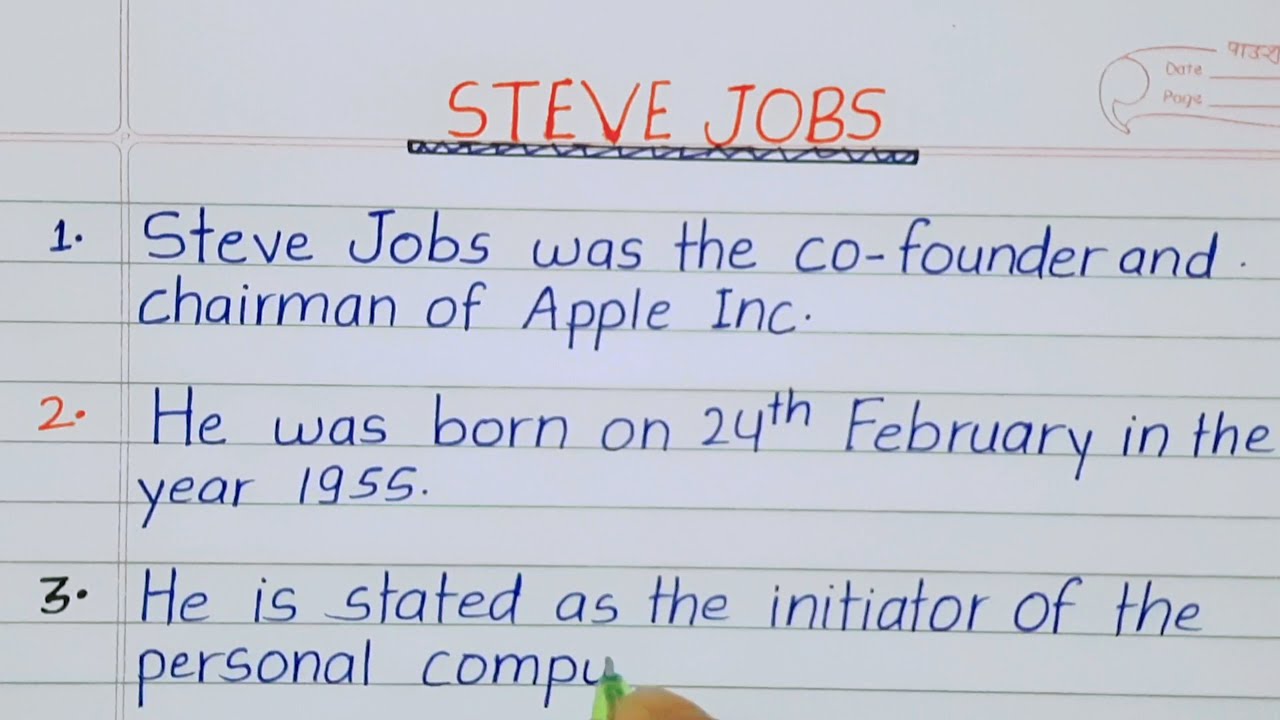 पाठशा
Date
Page
STEVE JOBS
1. Steve Jobs was the co-founder and
chairman of Apple Inc.
2. He was born on 24th February in the
year 1955.
3. He is stated as the initiator of the
personal compu